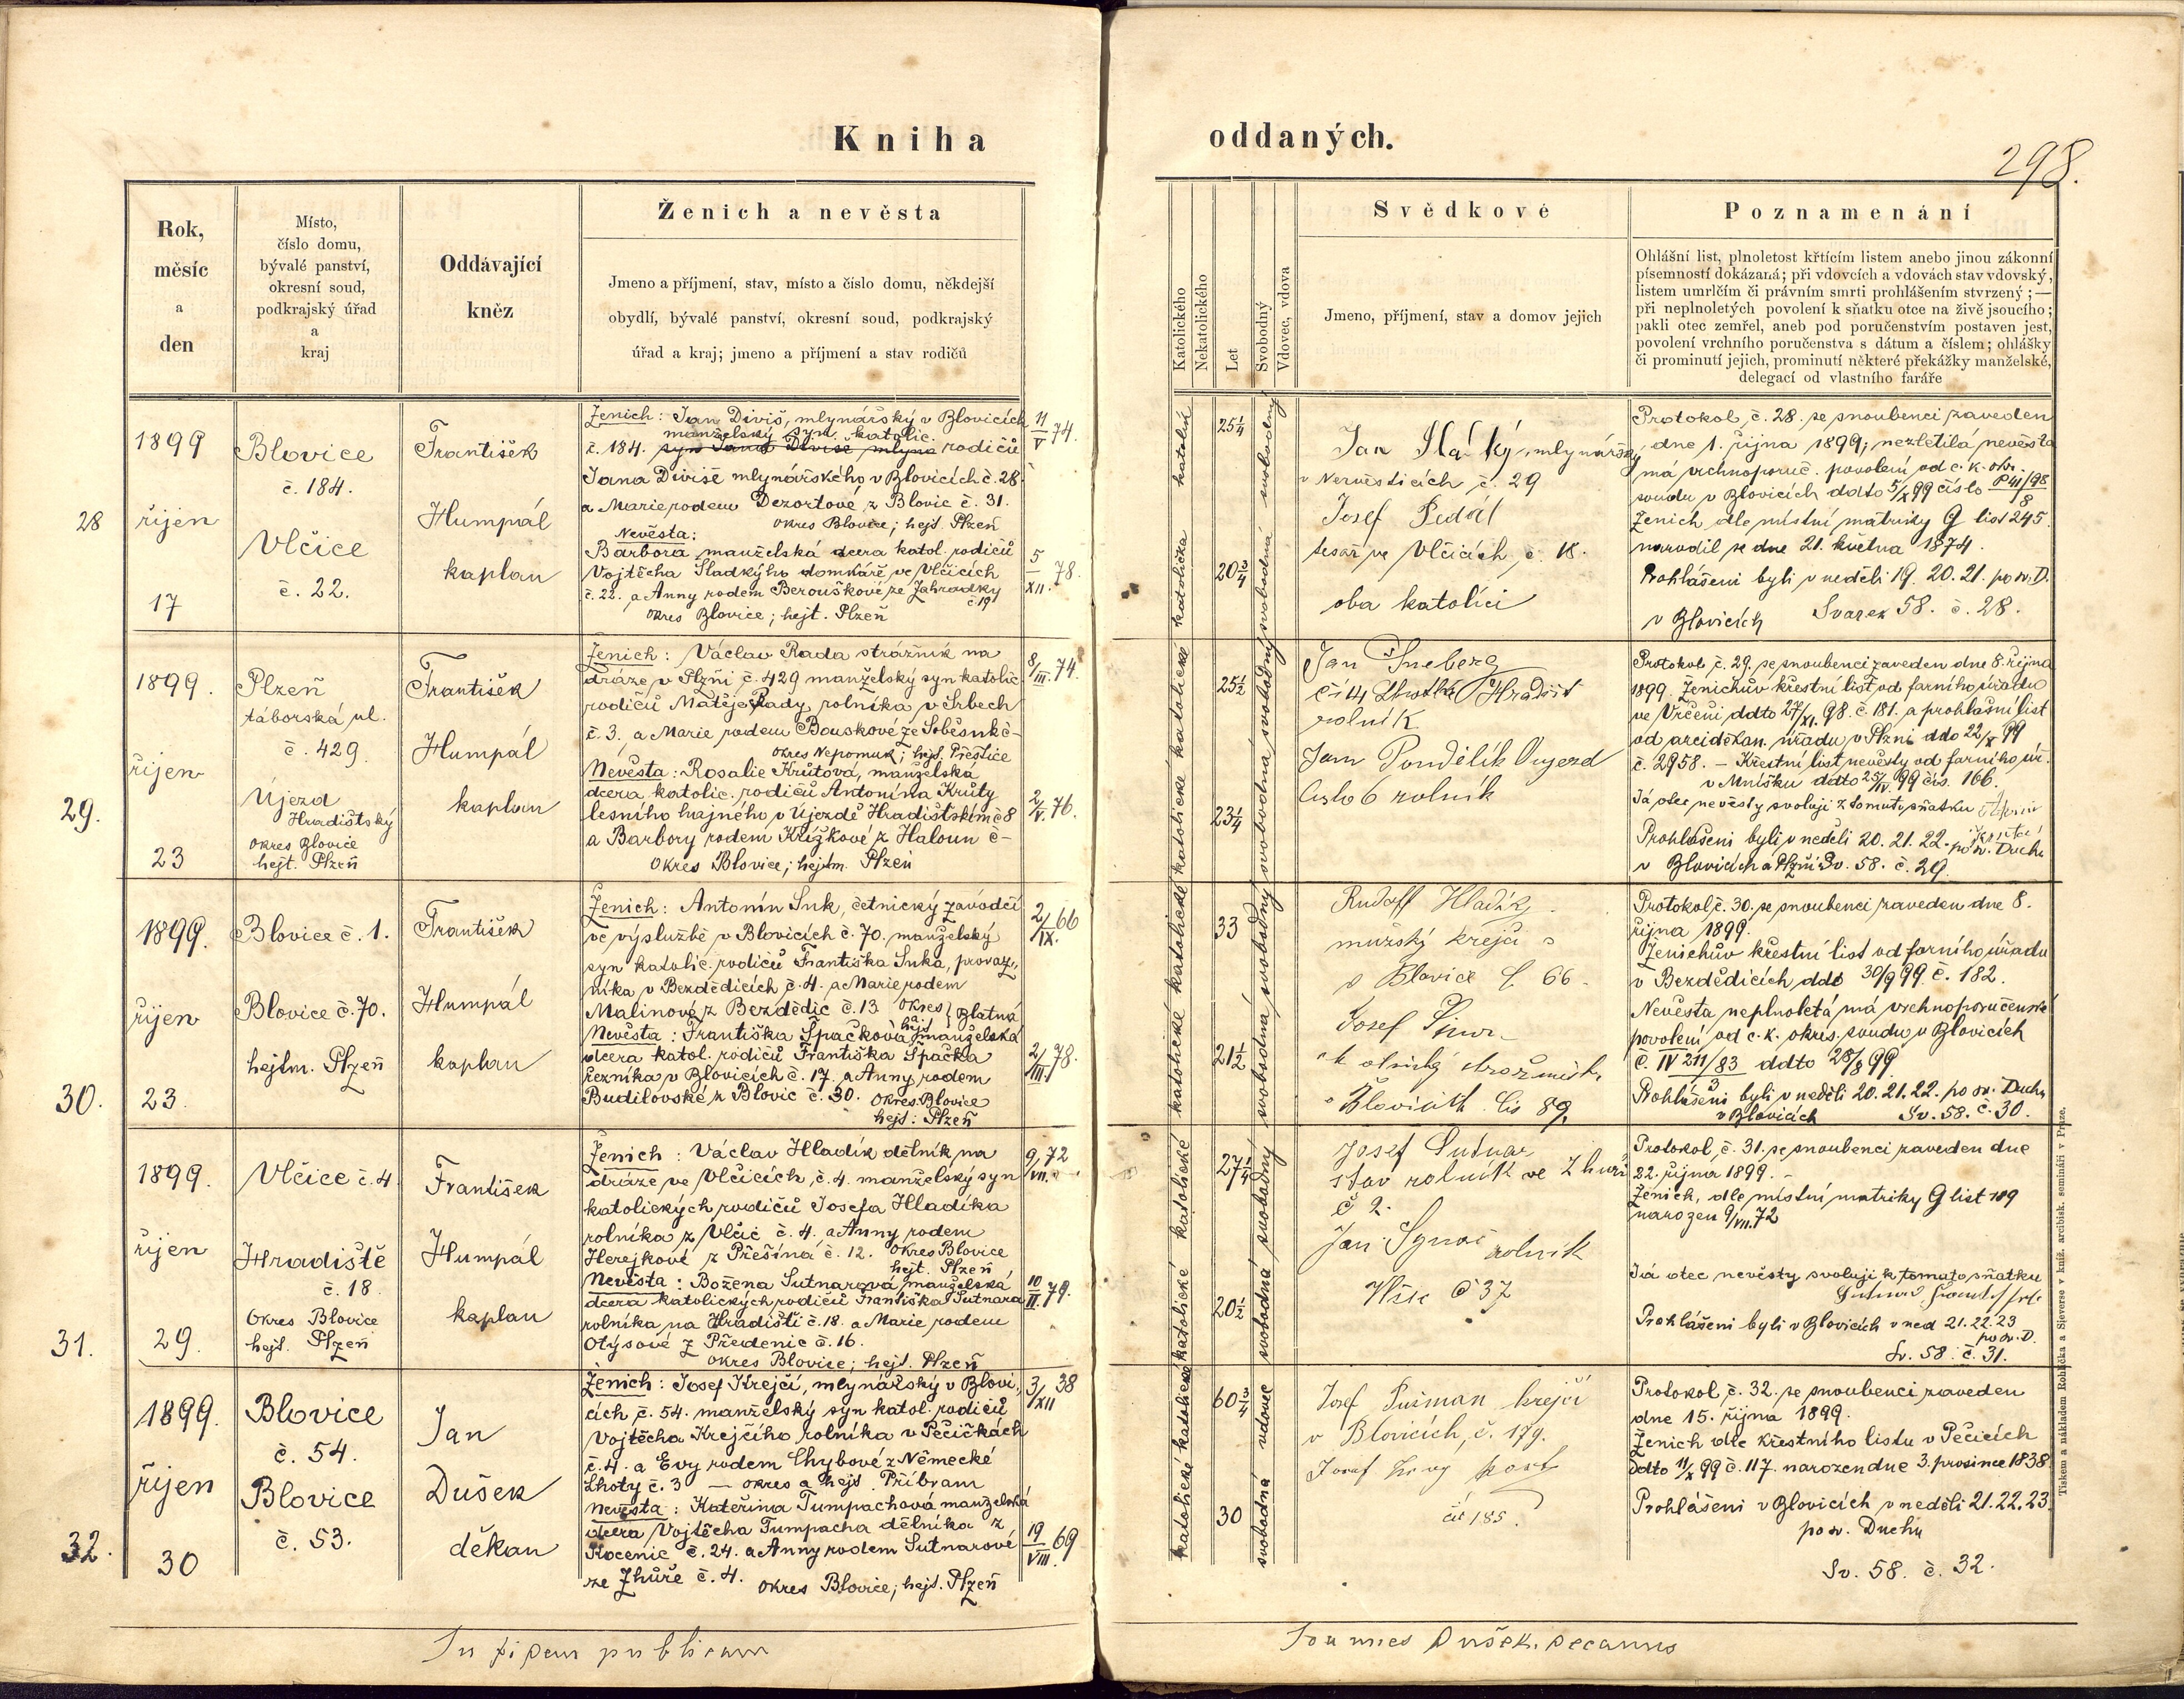 Kniha oddaných.
298.
Rok, měsíc a den
Místo, číslo domu, bývalé panství, okresní soud, podkrajský úřad a kraj
Oddávající kněz
Ženich a nevěsta
Jmeno a příjmení, stav, místo a číslo domu, někdejší
obydlí, bývalé panství, okresní soud, podkrajský
úřad a kraj; jmeno a příjmení a stav rodičů
Katolického
Nekatolického
Let
Svobodný
Vdovec, vdova
Svědkové
Jmeno, příjmení, stav a domov jejich
Poznamenání
Ohlášní list, plnoletost křtícím listem anebo jinou zákonní
písemností dokázaná; při vdovcích a vdovách stav vdovský,
listem umrlčím či právním smrti prohlášením stvrzený; —
při neplnoletých povolení k sňatku otce na živě jsoucího;
pakli otec zemřel, aneb pod poručenstvím postaven jest,
povolení vrchního poručenstva s dátum a číslem; ohlášky
či prominutí jejich, prominutí některé překážky manželské,
delegací od vlastního faráře
28
1899
říjen
17
Blovice
č. 184.
Vlčice
č. 22.
František
Humpál
kaplan
Ženich: Jan Diviš, mlynářský v Blovicích
manželský syn katolic.
č. 184. syn Jana Diviše mlyna rodičů
Jana Diviše mlynářského v Blovicích č. 28
a Marie rodem Dezortové z Blovic č. 31.
okres Blovice; hejt. Plzeň
Nevěsta:
Barbora manželská dcera katol. rodičů
Vojtěcha Sladkýho domkáře ve Vlčicích
č. 22. a Anny rodem Berouškové ze Zahradky
č 19
okres Blovice; hejt. Plzeň
11/V 74.
5/XII. 78.
katolický
katolička
25¼
20¾
svobodný
svobodná
Jan mlynářský
v Nezvěsticích č. 29
Josef Sedál
tesař ve Vlčicích č. 18.
oba katolíci
Protokol č. 28. se snoubenci zaveden
dne 1. října 1899; nezletilá nevěsta
má vrchnoporuč. povolení od c. k. okr.
soudu v Blovicích ddto 5/X 99 číslo P 411/98 8
Ženich dle místní matriky G list 245.
narodil se dne 21. května 1874.
Prohlášeni byli v neděli 19. 20. 21. po sv. D.
v Blovicích Svazek 58. č. 28.
29.
1899.
říjen
23
Plzeň
táborská ul.
č. 429.
Újezd
Hradištský
okres Blovice
hejt. Plzeň
František
Humpál
kaplan
Ženich: Václav Rada strážník na
dráze v Plzni č. 429 manželský syn katolic
rodičů Matěje Rady, rolníka v Srbech
č. 3. a Marie rodem Bouskové ze Soběsuk č-
okres Nepomuk; hejt. Přeštice
Nevěsta: Rosalie Krůtová, manželská
dcera katolic. rodičů Antonína Krůty
lesního hajného v Újezdě Hradištském č 8
a Barbory rodem Křížkové z Haloun č-
okres Blovice; hejtm. Plzeň
8/III. 74.
2/V. 76.
katolické
katolické
25½
23¼
svobodný
svobodná
Jan Šneberg
čí 14 Lhotka Hradišt
rolník
Jan Pondělík Oujezd
Čislo 6 rolník
Protokol č. 29. se snoubenci zaveden dne 8. října
1899. Ženichův křestní list od farního úřadu
ve Vrčeni ddto 27/XI. 98. č. 181. a prohlašní list
od arciděkan. úřadu v Plzni ddo 22/X 99
č. 2958. — Křestní list nevěsty od farního úř.
v Mníšku ddto 25/IV. 99 čís. 166.
Já otec nevěsty svoluji k tomuto sňatku
Prohlášeni byli v neděli 20. 21. 22. po sv. Duchu
v Blovicích a Plzni Sv. 58. č. 29.
30.
1899.
říjen
23.
Blovice č. 1.
Blovice č. 70.
hejtm. Plzeň
František
Humpál
kaplan
Ženich: Antonín Suk, četnický závodčí
ve výslužbě v Blovicích č. 70. manželský
syn katolic. rodičů Františka Suka, provaz-
níka v Bezdědicích č. 4. a Marie rodem
Malinové z Bezdědic č. 13 okres a hejt Blatná
Nevěsta: Františka Špačkova manželská
dcera katol. rodičů Františka Špačka
řezníka v Blovicích č. 17. a Anny rodem
Budilovské z Blovic č. 30. okres: Blovice
hejt: Plzeň
2/IX. 66
2/III. 78.
katolické
katolické
33
21½
svobodný
svobodná
Rudolf Hladík
mužský krejčí
v Blovice č. 66
Josef
v Blovicích čis 89.
Protokol č. 30. se snoubenci zaveden dne 8.
října 1899.
Ženichův křestní list od farního úřadu
v Bezdědicích ddto 30/9 99. č. 182.
Nevěsta neplnoletá má vrchnoporučenské
povolení od c. k. okres. soudu v Blovicích
č. IV 211/83 3 ddto 28/8 99.
Prohlášeni byli v neděli 20. 21. 22. po sv. Duchu
v Blovicích Sv. 58. č. 30.
31.
1899.
říjen
29.
Vlčice č. 4
Hradiště
č. 18.
Okres Blovice
hejt. Plzeň
František
Humpál
kaplan
Ženich: Václav Hladík dělník na
dráze ve Vlčicích, č. 4. manželský syn
katolických rodičů Josefa Hladíka
rolníka z Vlčic č. 4. a Anny rodem
Herejkové z Přešína č. 12. okres Blovice
hejt. Plzeň
Nevěsta: Božena Sutnarová manželská
dcera katolických rodičů Františka Sutnara
rolníka na Hradišti č. 18. a Marie rodem
Otýsové z Předenic č. 16.
okres Blovice; hejt. Plzeň
9/VII. 72
10/II. 79.
katolické
katolické
27¼
20½
svobodný
svobodná
Josef Sutnar
stav rolník ve Zhuři
č 2.
Jan rolník
Vlčic č 37
Protokol č. 31. se snoubenci zaveden dne
22. října 1899. —
Ženich, dle místní matriky G list 189
narozen 9/VII. 72
Já otec nevěsty svoluji k tomato sňatku
Prohlášeni byli v Blovicích v ned 21. 22. 23
po sv. D.
Sv. 58. č. 31.
32.
1899.
říjen
30
Blovice
č. 54.
Blovice
č. 53.
Jan
Dušek
děkan
Ženich: Josef Krejčí, mlynářský v Blovi-
cích č. 54. manželský syn katol. rodičů
Vojtěcha Krejčího rolníka v Pečičkách
č. 4. a Evy rodem Chybové z Německé
Lhoty č. 3 — okres a hejt. Příbram
Nevěsta: Kateřina Tumpachová manželská
dcera Vojtěcha Tumpacha dělníka z
Kocenic č. 24. a Anny rodem Sutnarové
ze Zhůře č. 4. okres Blovice; hejt. Plzeň
3/XII 38
19/VIII. 69
katolické
katolické
60¾
30
vdovec
svobodná
Josef Pušman krejčí
v Blovicích, č. 179.
Josef
čís 185.
Protokol č. 32. se snoubenci zaveden
dne 15. října 1899.
Ženich dle křestního listu v Pečicích
ddto 11/X 99 č. 117. narozen dne 3. prosince 1838.
Prohlášeni v Blovicích v neděli 21. 22. 23.
po sv. Duchu
Sv. 58. č. 32.
In fidem publicam
Joannes Dušek, decanus
Tiskem a nákladem Rohlíčka a Sieverse v kníž. arcibisk. semináři v Praze.